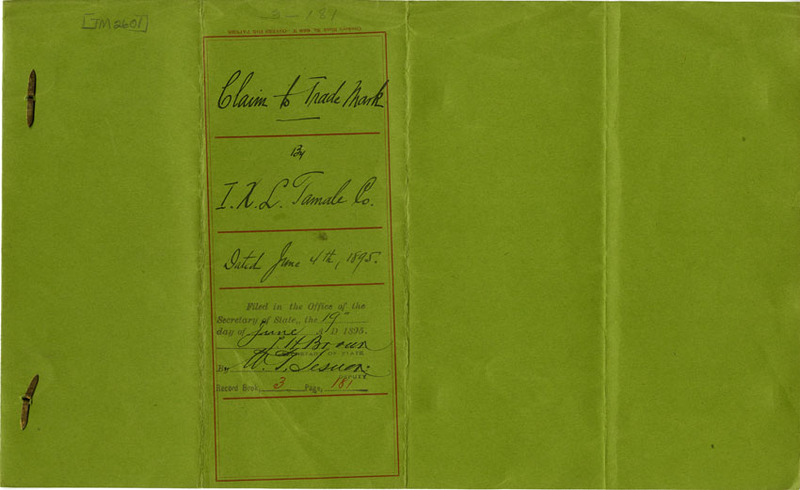 [TM2601]
3-181
Claim to Trade Mark
By
I. X. L. Tamale Co.
Dated June 4th, 1895.
Filed in the Office of the
Secretary of State, the 19"
day of June A D 1895.
Brown
SECRETARY OF STATE
By W. T.
DEPUTY
Record Book, 3 Page, 181